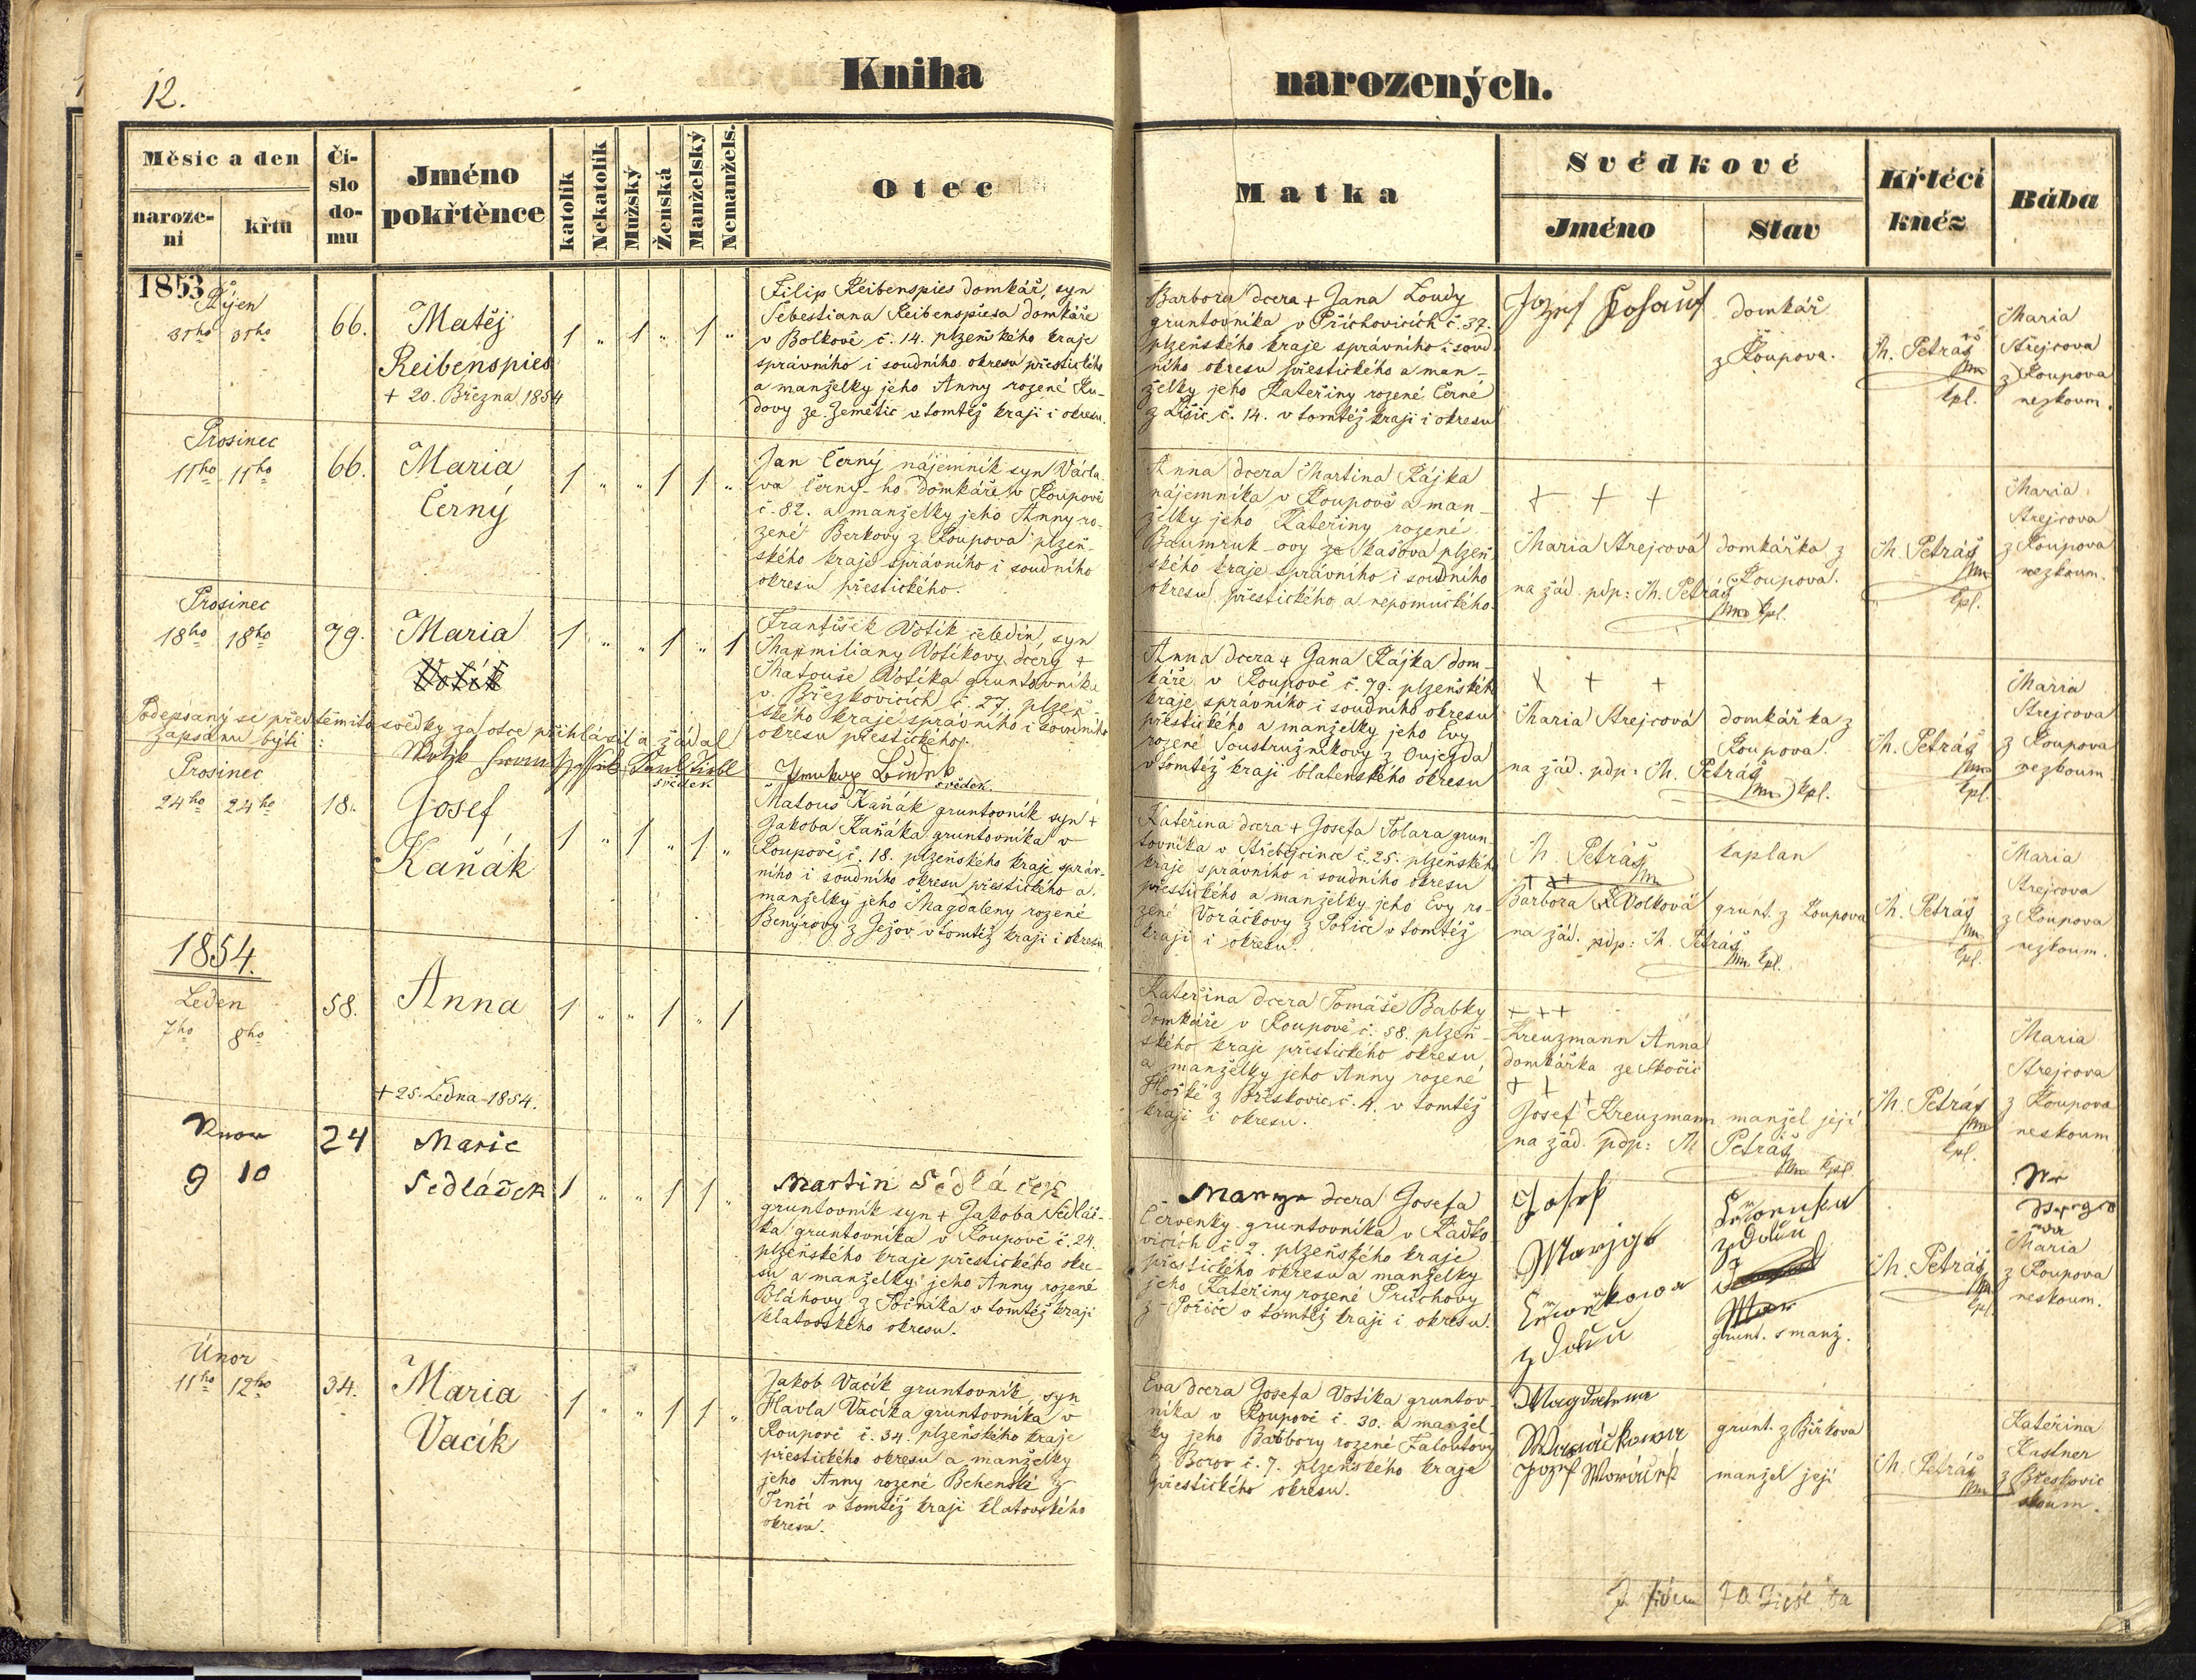 12.
Kniha narozených.
Měsíc a den
naroze-
ni
křtu
Čí-
slo
do-
mu
Jméno
pokřtěnce
katolík
Nekatolík
Mužský
Ženská
Manželský
Nemanžels.
Otec
Matka
Svědkové
Jméno
Stav
Křtěcí
kněz
Bába
1853
Říjen
31ho 31ho
66.
Matěj
Reibenspies
+ 20. Března 1854
1 „ 1 „ 1 „
Filip Reibenspies domkář, syn
Šebestiana Reibenspiesa domkáře
v Bolkově č. 14. plzeňského kraje
správního i soudního okresu přestického
a manželky jeho Anny rozené Ku-
dovy ze Zemětic v tomtéž kraji i okresu.
Barbora dcera + Jana Loudy
gruntovníka v Příchovicích č. 37.
plzeňského kraje správního i soud-
ního okresu přestického a man-
želky jeho Kateřiny rozené Černé
z Lišic č. 14. v tomtéž kraji i okresu
domkář
z Roupova.
M. Petráš
kpl.
Maria
Strejcova
z Roupova
nezkoum.
Prosinec
11ho 11ho
66.
Maria
Černý
1 „ „ 1 1 „
Jan Černý nájemník syn Václa-
va Černý-ho domkáře v Roupově
č. 82. a manželky jeho Anny ro-
zené Berkovy z Roupova plzeň-
ského kraje správního i soudního
okresu přestického.
Anna dcera Martina Rájka
nájemníka v Roupově a man-
želky jeho Kateřiny rozené
Baumruk-ovy ze Skašova plzeň
ského kraje správního i soudního
okresu přestického a nepomuckého.
+ + +
Maria Strejcová
domkářka z
Roupova.
na žád. pdp: M. Petráš
kpl.
M. Petráš
kpl.
Maria
Strejcova
z Roupova
nezkoum.
Prosinec
18ho 18ho
79.
Maria
Votík
1 „ „ 1 „ 1
František Votík čeledín, syn
Maxmiliany Votíkovy dcery +
Matouše Votíka gruntovníka
v Březkovicích č. 27. plzeň-
ského kraje správního i soudního
okresu přestického.
Podepsaný se před těmito svědky za otce přihlásil a žádal
zapsánu býti:
svědek
svědek.
Anna dcera + Jana Rájka dom-
káře v Roupově č. 79. plzeňského
kraje správního i soudního okresu
přestického a manželky jeho Evy
rozené Soustružníkovy z Oujezda
v tomtéž kraji blatenského okresu
+ + +
Maria Strejcová
domkářka z
Roupova.
na žád. pdp: M. Petráš
kpl.
M. Petráš
kpl.
Maria
Strejcova
z Roupova
nezkoum
Prosinec
24ho 24ho
18.
Josef
Kaňák
1 „ 1 „ 1 „
Matouš Kaňák gruntovník syn +
Jakoba Kaňáka gruntovníka v
Roupově č. 18. plzeňského kraje správ-
ního i soudního okresu přestického a
manželky jeho Magdaleny rozené
Benýrovy z Ježov v tomtéž kraji i okresu
Kateřina dcera + Josefa Tolara grun-
tovníka v Střebejcince č. 25. plzeňského
kraje správního i soudního okresu
přestického a manželky jeho Evy ro-
zené Voráčkovy z Poříče v tomtéž
kraji i okresu.
M. Petráš
kaplan
+ + +
Barbora Volková
grunt. z Roupova
na žád. pdp: M. Petráš
kpl.
M. Petráš
kpl.
Maria
Strejcova
z Roupova
nezkoum.
1854.
Leden
7ho 8ho
58.
Anna
+ 25. Ledna 1854.
1 „ „ 1 „ 1
Kateřina dcera Tomáše Babky
domkáře v Roupově č. 58. plzeň-
ského kraje přestického okresu
a manželky jeho Anny rozené
Hořké z Břískovic č. 4. v tomtéž
kraji i okresu.
+ + +
Kreuzmann Anna
domkářka ze Skočic
+ + +
Josef Kreuzmann manžel její
na žád. pdp: M Petráš
kpl.
M. Petráš
kpl.
Maria
Strejcova
z Roupova
neskoum
Unor
9 10
24
Marie
Sedláček
1 „ „ 1 1 „
Martin Sedláček
gruntovník syn + Jakoba Sedláč-
ka gruntovníka v Roupově č. 24.
plzeňského kraje přestického okre-
su a manželky jeho Anny rozené
Bláhovy z Točníka v tomtéž kraji
klatovského okresu.
dcera Josefa
Červenky gruntovníka v Radko-
vicích č. 2. plzeňského kraje
přestického okresu a manželky
jeho Kateřiny rozené Průchovy
z Poříče v tomtéž kraji i okresu.
Josef
grunt. s manž.
M. Petráš
kpl.
Maria
z Roupova
neskoum.
Únor
11ho 12ho
34.
Maria
Vacík
1 „ „ 1 1 „
Jakob Vacík gruntovník, syn
Havla Vacíka gruntovníka v
Roupově č. 34. plzeňského kraje
přestického okresu a manželky
jeho Anny rozené Behenské z
Trnčí v tomtéž kraji klatovského
okresu.
Eva dcera Josefa Votíka gruntov-
níka v Roupově č. 30. a manžel-
ky jeho Barbory rozené Faloutovy
z Borov č. 7. plzeňského kraje
přestického okresu.
Magdalena
grunt. z Birkova
manžel její
M. Petráš
Kateřina
Kastner
z Břeskovic
skoum.